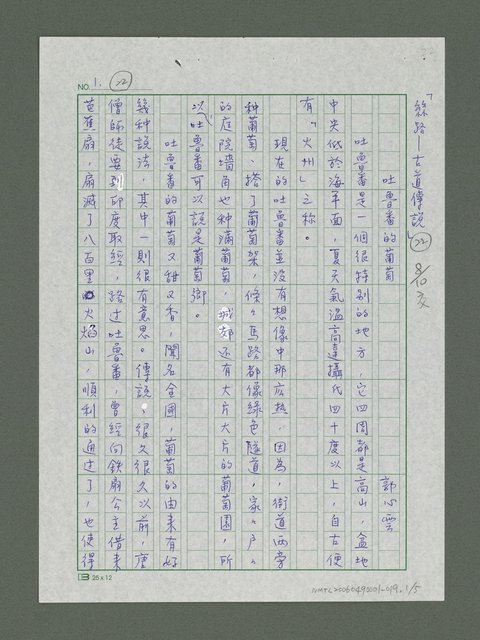 「絲路－古道傳說」(22)
8/10交
NO. 1. (22)
吐魯番的葡萄
吐魯番是一個很特別的地方，它四周都是高山，盆地
中央低於海平面，夏天氣溫高達攝氏四十度以上，自古便
有「火州」之稱。
現在的吐魯番並沒有想像中那麼熱，因為，街道兩旁
種葡萄、搭了葡萄架，條々馬路都像綠色隧道，家々戶々
的庭院墻角也种滿葡萄，城郊还有大片大片的葡萄園，所
以，吐魯番可以說是葡萄鄉。
吐魯番的葡萄又甜又香，聞名全國，葡萄的由来有好
幾种說法，其中一則很有意思。傳說，很久很久以前，唐
僧師徒要到印度取經，路过吐魯番，曾經向鉄扇公主借来
芭蕉扇，扇滅了八百里火焰山，順利的通过了，也使得
25 x 12
NMTL20060490001-019. 1/5